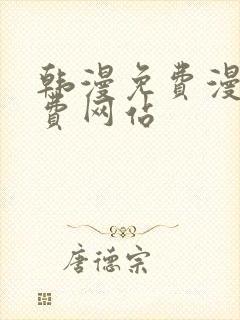 韩漫免费漫
费网站
唐德宗